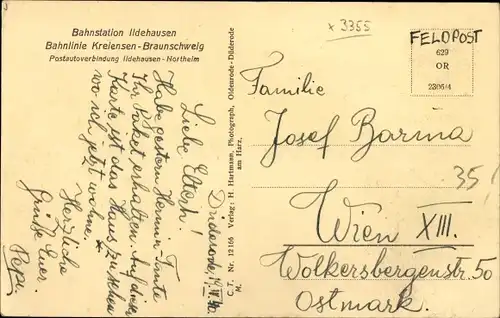 Bahnstation Ildehausen
Bahnlinie Kreiensen-Braunschweig
Postautoverbindung Ildehausen-Northeim
x 3355
FELDPOST
629
OR
2306/4
Düderode, 14.VI.40.
Liebe Eltern!
Habe gestern Hermin-Tante
Ihr Paket erhalten. Auf dieser
Karte ist das Haus zu sehen
wo ich jetzt wohne.
Herzliche
Grüße Euer
Pepi.
C. T. Nr. 12165 Verlag: H. Hartmann, Photograph, Oldenrode-Düderode
am Harz.
Familie
Josef Barma
35
Wien XIII.
Wolkersbergenstr. 50
Ostmark.